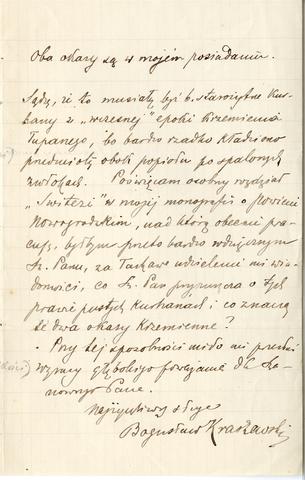 Oba okazy są w mojém posiadaniu.
Sądzę, iż to musiały być b. starożytne Kur-
hany z „wczesnej" epoki Krzemienia
łupanego, bo bardzo rzadko kładziono
przedmioty obok popiołu po spalonych
zwłokach. Poświęcam osobny rozdział
„Switezi" w mojej monografii o powiecie
Nowogródzkim, nad którą obecnie pra-
cuję, byłbym przeto bardzo wdzięcznym
Sz. Panu, za łaskawe udzielenie mi wia-
domości, co Sz. Pan przypuszcza o tych
prawie pustych Kurhanach i co znaczą
te dwa okazy Krzemienne?
Przy tej sposobności miło mi przesłać
wyrazy głębokiego poważania dla Sza-
nownego Pana.
Najżyczliwszy sługa
Bogusław Kraszewski